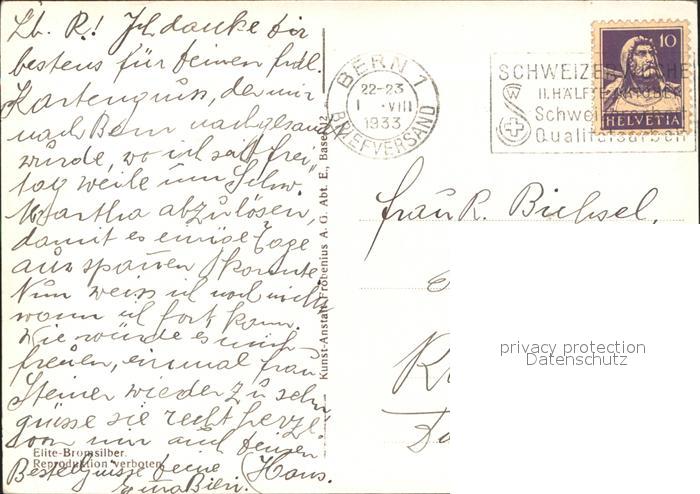 Lb. R.! Ich danke dir
bestens für deinen frdl.
Kartengruss, der mir
nach Bern nachgesand
wurde, wo ich seit Frei-
tag weile um Schw.
Martha abzulösen,
damit es einige Tage
ausspannen konnte.
Nun weiss ich noch nicht
wann ich fort kann.
Wie würde es mich
freuen, einmal Frau
Steiner wieder zu sehn
grüsse sie recht herzl.
von mir und deinen
Elite-Bromsilber.
Reproduktion verboten.
Beste Grüsse deine
Kunst-Anstalt Frobenius A. G. Abt. E., Basel
BERN 1
22-23
1 -VIII
1933
BRIEFVERSAND
SCHWEIZER WOCHE
II. HÄLFTE OKTOBER
Schweizer
Qualitätsarbeit
10
HELVETIA
Frau R. Bichsel,
privacy protection
Datenschutz